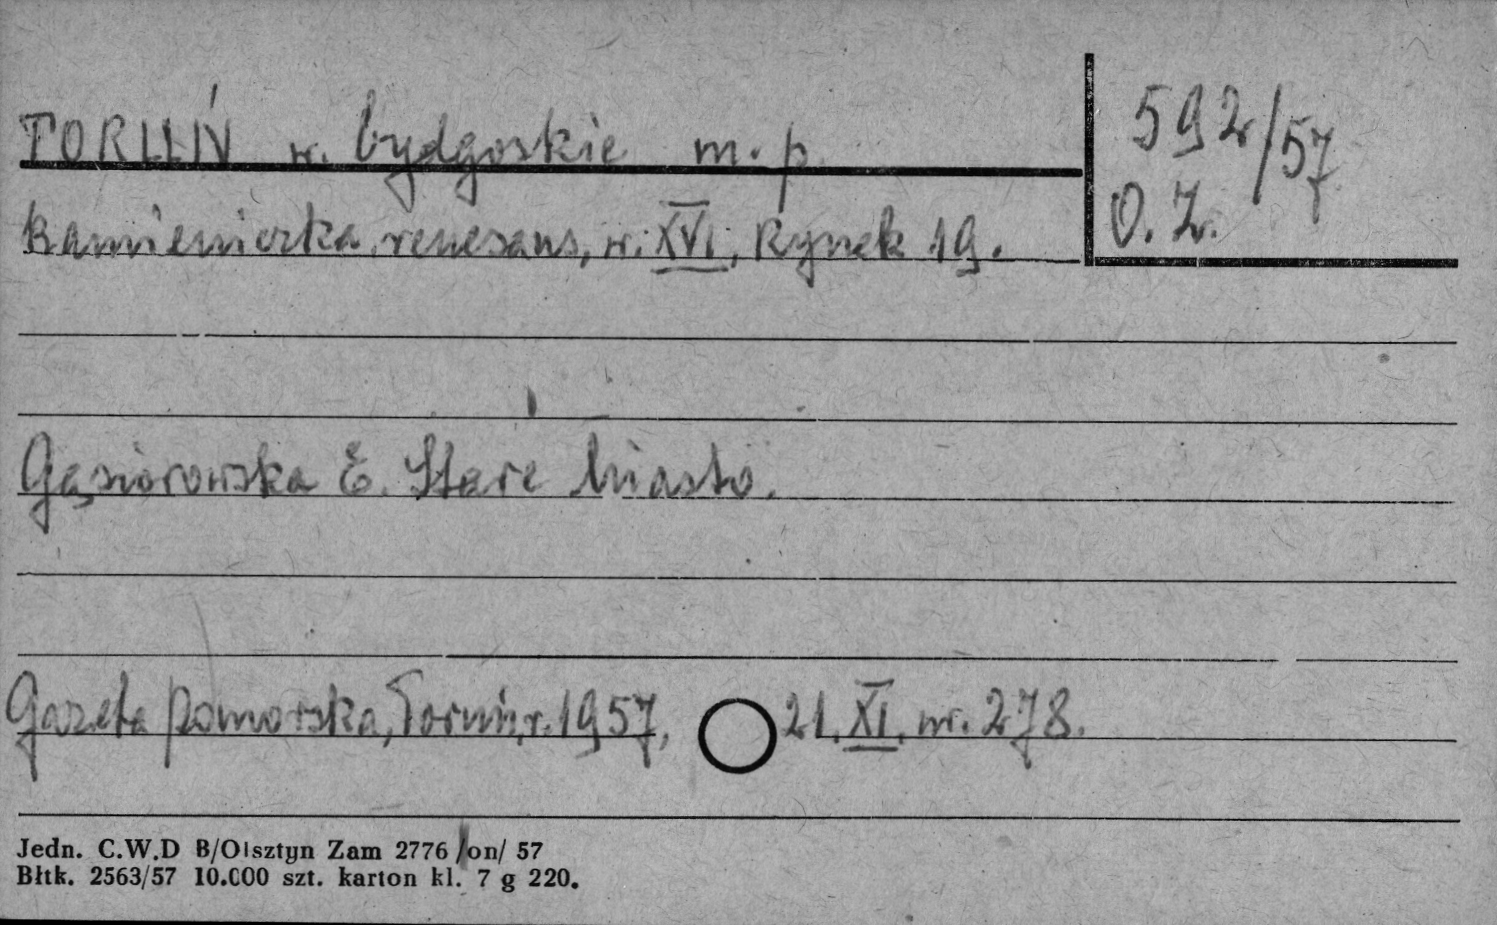 TORUŃ w. bydgoskie m. p.
592/57
O. Z.
Kamieniczka, renesans, w. XVI, Rynek 19.
Gąsiorowska E. Stare Miasto.
Gazeta Pomorska, Toruń, r. 1957, 21. XI. nr. 278.
Jedn. C.W.D B/Olsztyn Zam 2776 /on/ 57
Błtk. 2563/57 10.000 szt. karton kl. 7 g 220.